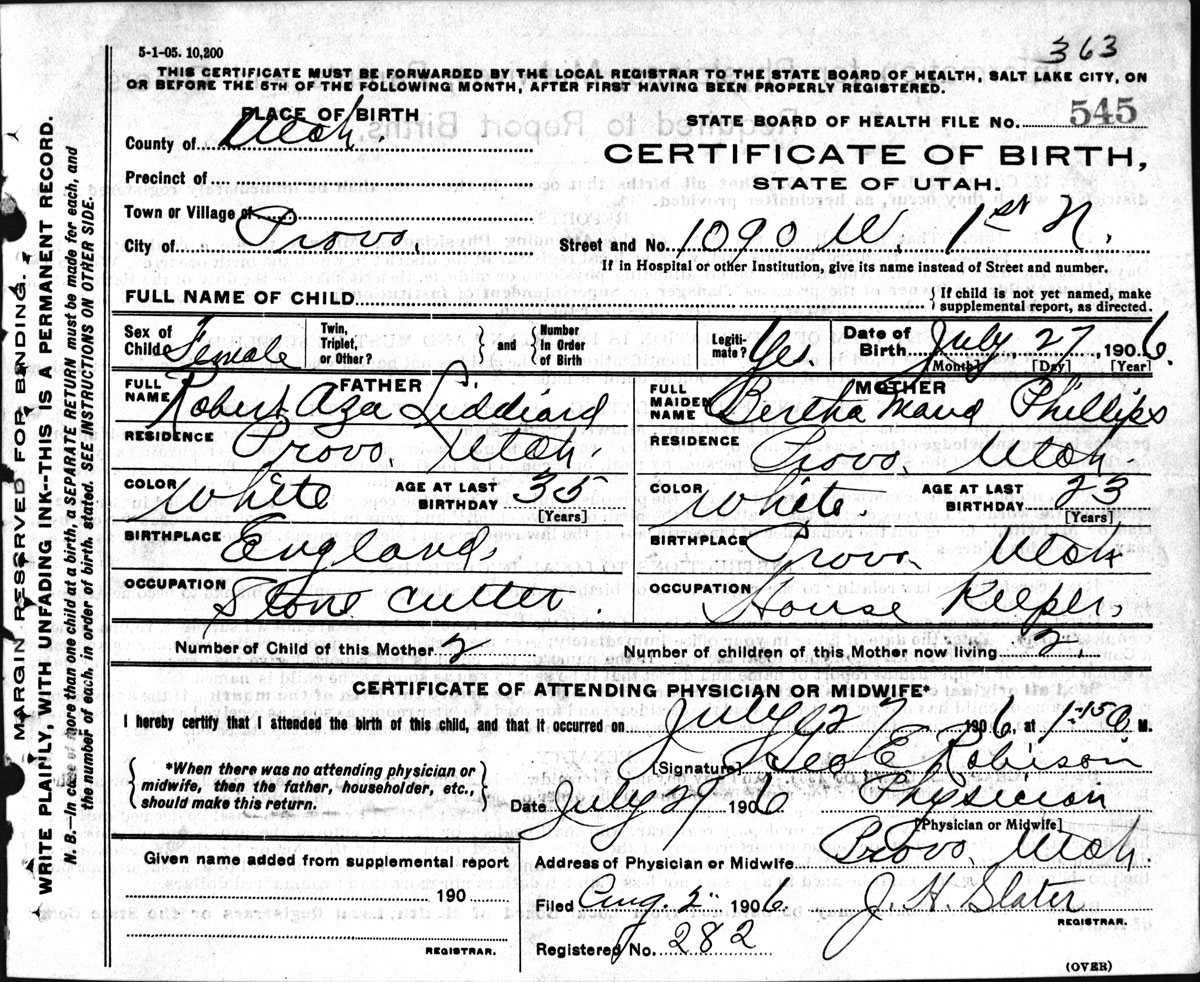 5-1-05. 10,200
363
THIS CERTIFICATE MUST BE FORWARDED BY THE LOCAL REGISTRAR TO THE STATE BOARD OF HEALTH, SALT LAKE CITY, ON
OR BEFORE THE 5TH OF THE FOLLOWING MONTH, AFTER FIRST HAVING BEEN PROPERLY REGISTERED.
PLACE OF BIRTH
STATE BOARD OF HEALTH FILE NO. 545
County of Utah.
CERTIFICATE OF BIRTH,
Precinct of
STATE OF UTAH.
Town or Village of
City of Provo
Street and No. 1090 W 1st N.
If in Hospital or other Institution, give its name instead of Street and number.
FULL NAME OF CHILD
If child is not yet named, make
supplemental report, as directed.
Sex of Child Female
Twin, Triplet, or Other?
and
Number In Order of Birth
Legiti-mate? Yes.
Date of Birth July, 27, 1906.
[Month] [Day] [Year]
FATHER
FULL NAME Robert Aza Liddiard
MOTHER
FULL MAIDEN NAME Bertha Maud Phillips
RESIDENCE Provo, Utah.
RESIDENCE Provo, Utah.
COLOR White
AGE AT LAST BIRTHDAY 35
[Years]
COLOR White.
AGE AT LAST BIRTHDAY 23
[Years]
BIRTHPLACE England.
BIRTHPLACE Provo Utah
OCCUPATION Stone cutter.
OCCUPATION House Keeper.
Number of Child of this Mother 2
Number of children of this Mother now living 2.
CERTIFICATE OF ATTENDING PHYSICIAN OR MIDWIFE*
I hereby certify that I attended the birth of this child, and that it occurred on July 27 1906, at 1-15 a. M.
*When there was no attending physician or
midwife, then the father, householder, etc.,
should make this return.
[Signature] Geo E. Robison
Date July 29 1906
Physician
[Physician or Midwife]
Given name added from supplemental report
190
REGISTRAR.
Address of Physician or Midwife Provo, Utah.
Filed Aug. 2" 1906.
J. H. Slater
REGISTRAR.
Registered No. 282
(OVER)
MARGIN RESERVED FOR BINDING.
WRITE PLAINLY, WITH UNFADING INK--THIS IS A PERMANENT RECORD.
N. B.--In case of more than one child at a birth, a SEPARATE RETURN must be made for each, and
the number of each, in order of birth, stated. SEE INSTRUCTIONS ON OTHER SIDE.